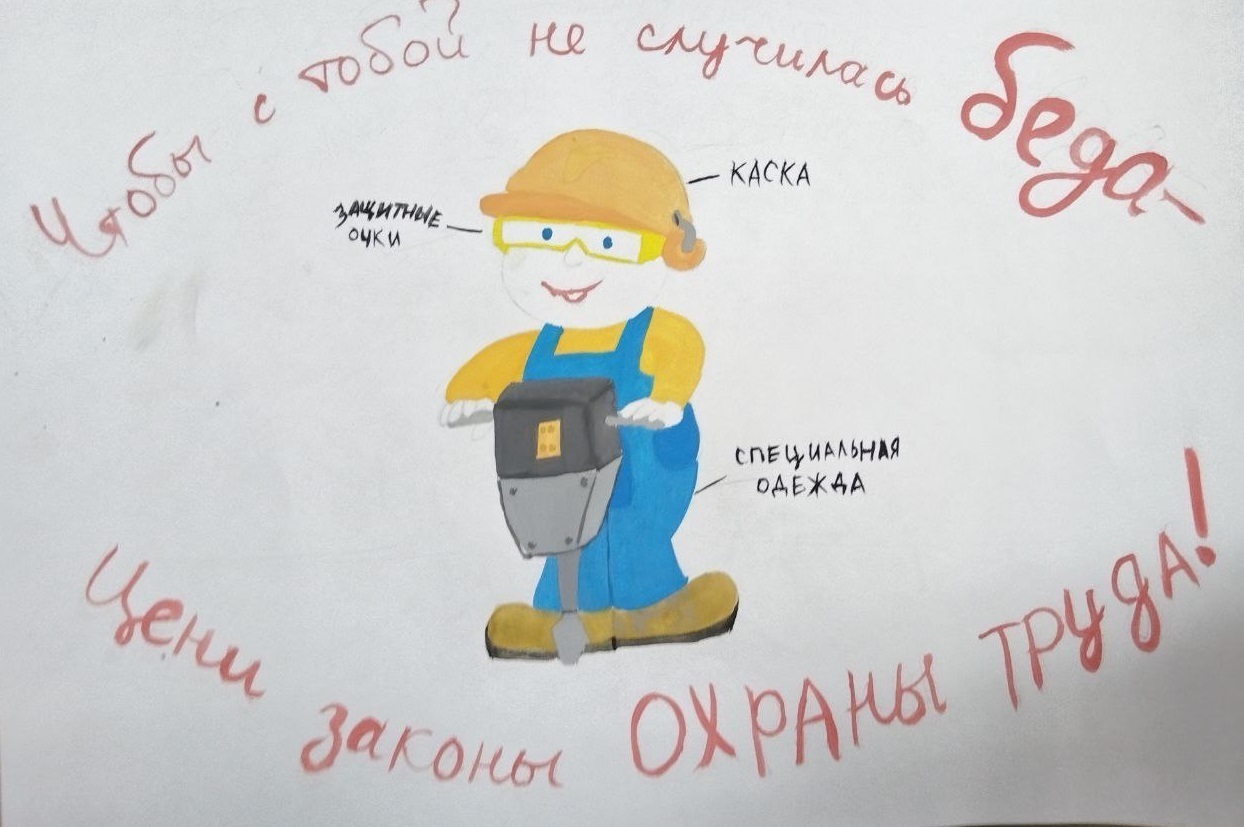 Чтобы с тобой не случилась беда-
КАСКА
ЗАЩИТНЫЕ
ОЧКИ
СПЕЦИАЛЬНАЯ
ОДЕЖДА
Цени законы ОХРАНЫ ТРУДА!